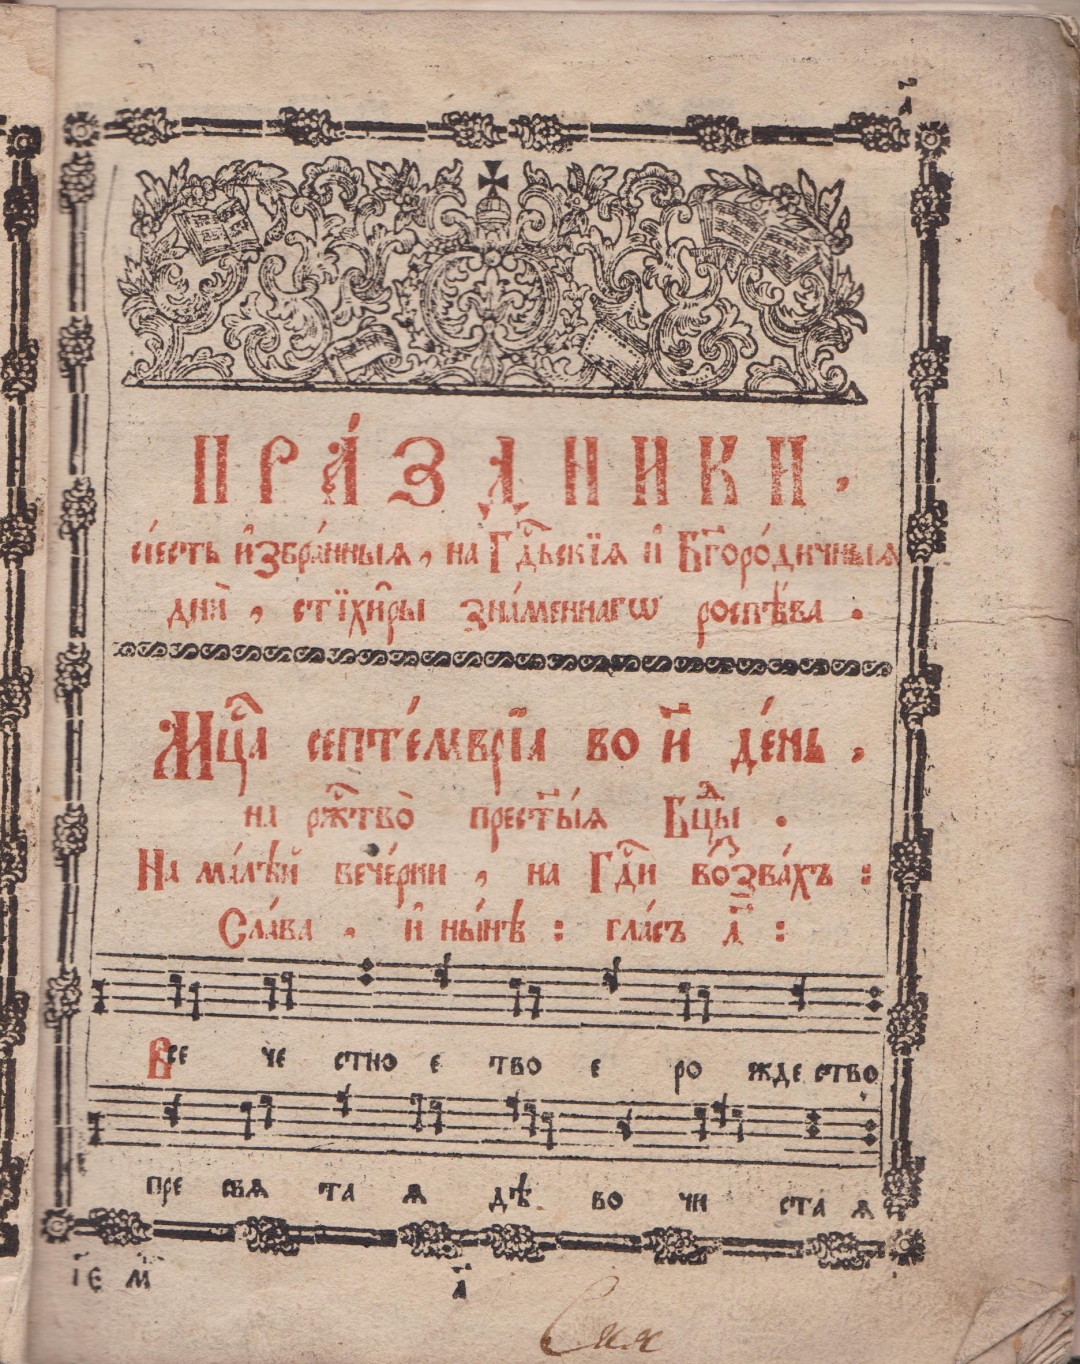 а҃
ПРА́ЗДНИКИ,
сі́есть и҆збра́нныѧ, на Гдⷭ҇ьскїѧ и҆ Бг҃оро́дичныѧ
дни̑, стїхи̑ры зна́меннагѡ роспѣ́ва.
Мцⷭ҇а септе́мврїа во и҃ де́нь,
на ржⷭ҇тво̀ прест҃ы́ѧ Бцⷣы.
На ма́лѣй вече́рни, на Гдⷭ҇и воззва́хъ:
Сла́ва, и҆ ны́нѣ: гла́съ д҃:
Все че стно е тво е ро жде ство
пре свѧ та ѧ дѣ во чи ста ѧ
а҃